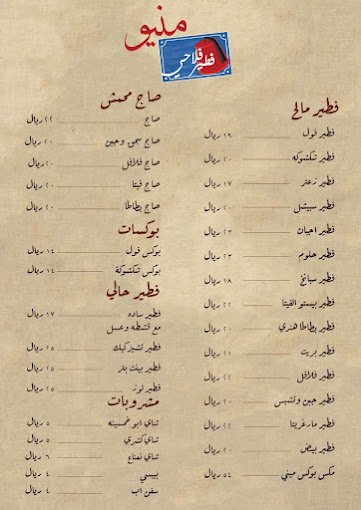 منيو
فطير فلاحي
فطير مالح
فطير فول ١٩ ريال
فطير شكشوكه ٢٠ ريال
فطير زعتر ١٧ ريال
فطير سبيشل ٤٠ ريال
فطير اجبان ٢٣ ريال
فطير حلوم ٢٣ ريال
فطير سبانخ ١٨ ريال
فطير بيستو الفيتا ٢٢ ريال
فطير بطاطا هندي ٢٠ ريال
فطير بريت ٢١ ريال
فطير فلافل ٢٢ ريال
فطير جبن وشبس ٢٠ ريال
فطير مارغريتا ٢٢ ريال
فطير بيض ٢٠ ريال
مكس بوكس ميني ٥٤ ريال
صاج محمش
صاج ٢٢ ريال
صاج سجق وجبن ٢٠ ريال
صاج فلافل ٢٠ ريال
صاج فيتا ٢٠ ريال
صاج بطاطا ٢٠ ريال
بوكسات
بوكس فول ١٤ ريال
بوكس شكشوكة ١٤ ريال
فطير حالي
فطير ساده ١٧ ريال
مع قشطه وعسل
فطير تشيز كيك ٢٥ ريال
فطير بينت بتر ٢٥ ريال
فطير لوز ٢٥ ريال
مشروبات
شاي ابو خمسينه ٥ ريال
شاي كشري ٥ ريال
شاي نعناع ٦ ريال
بيبسي ٤ ريال
سفن اب ٤ ريال